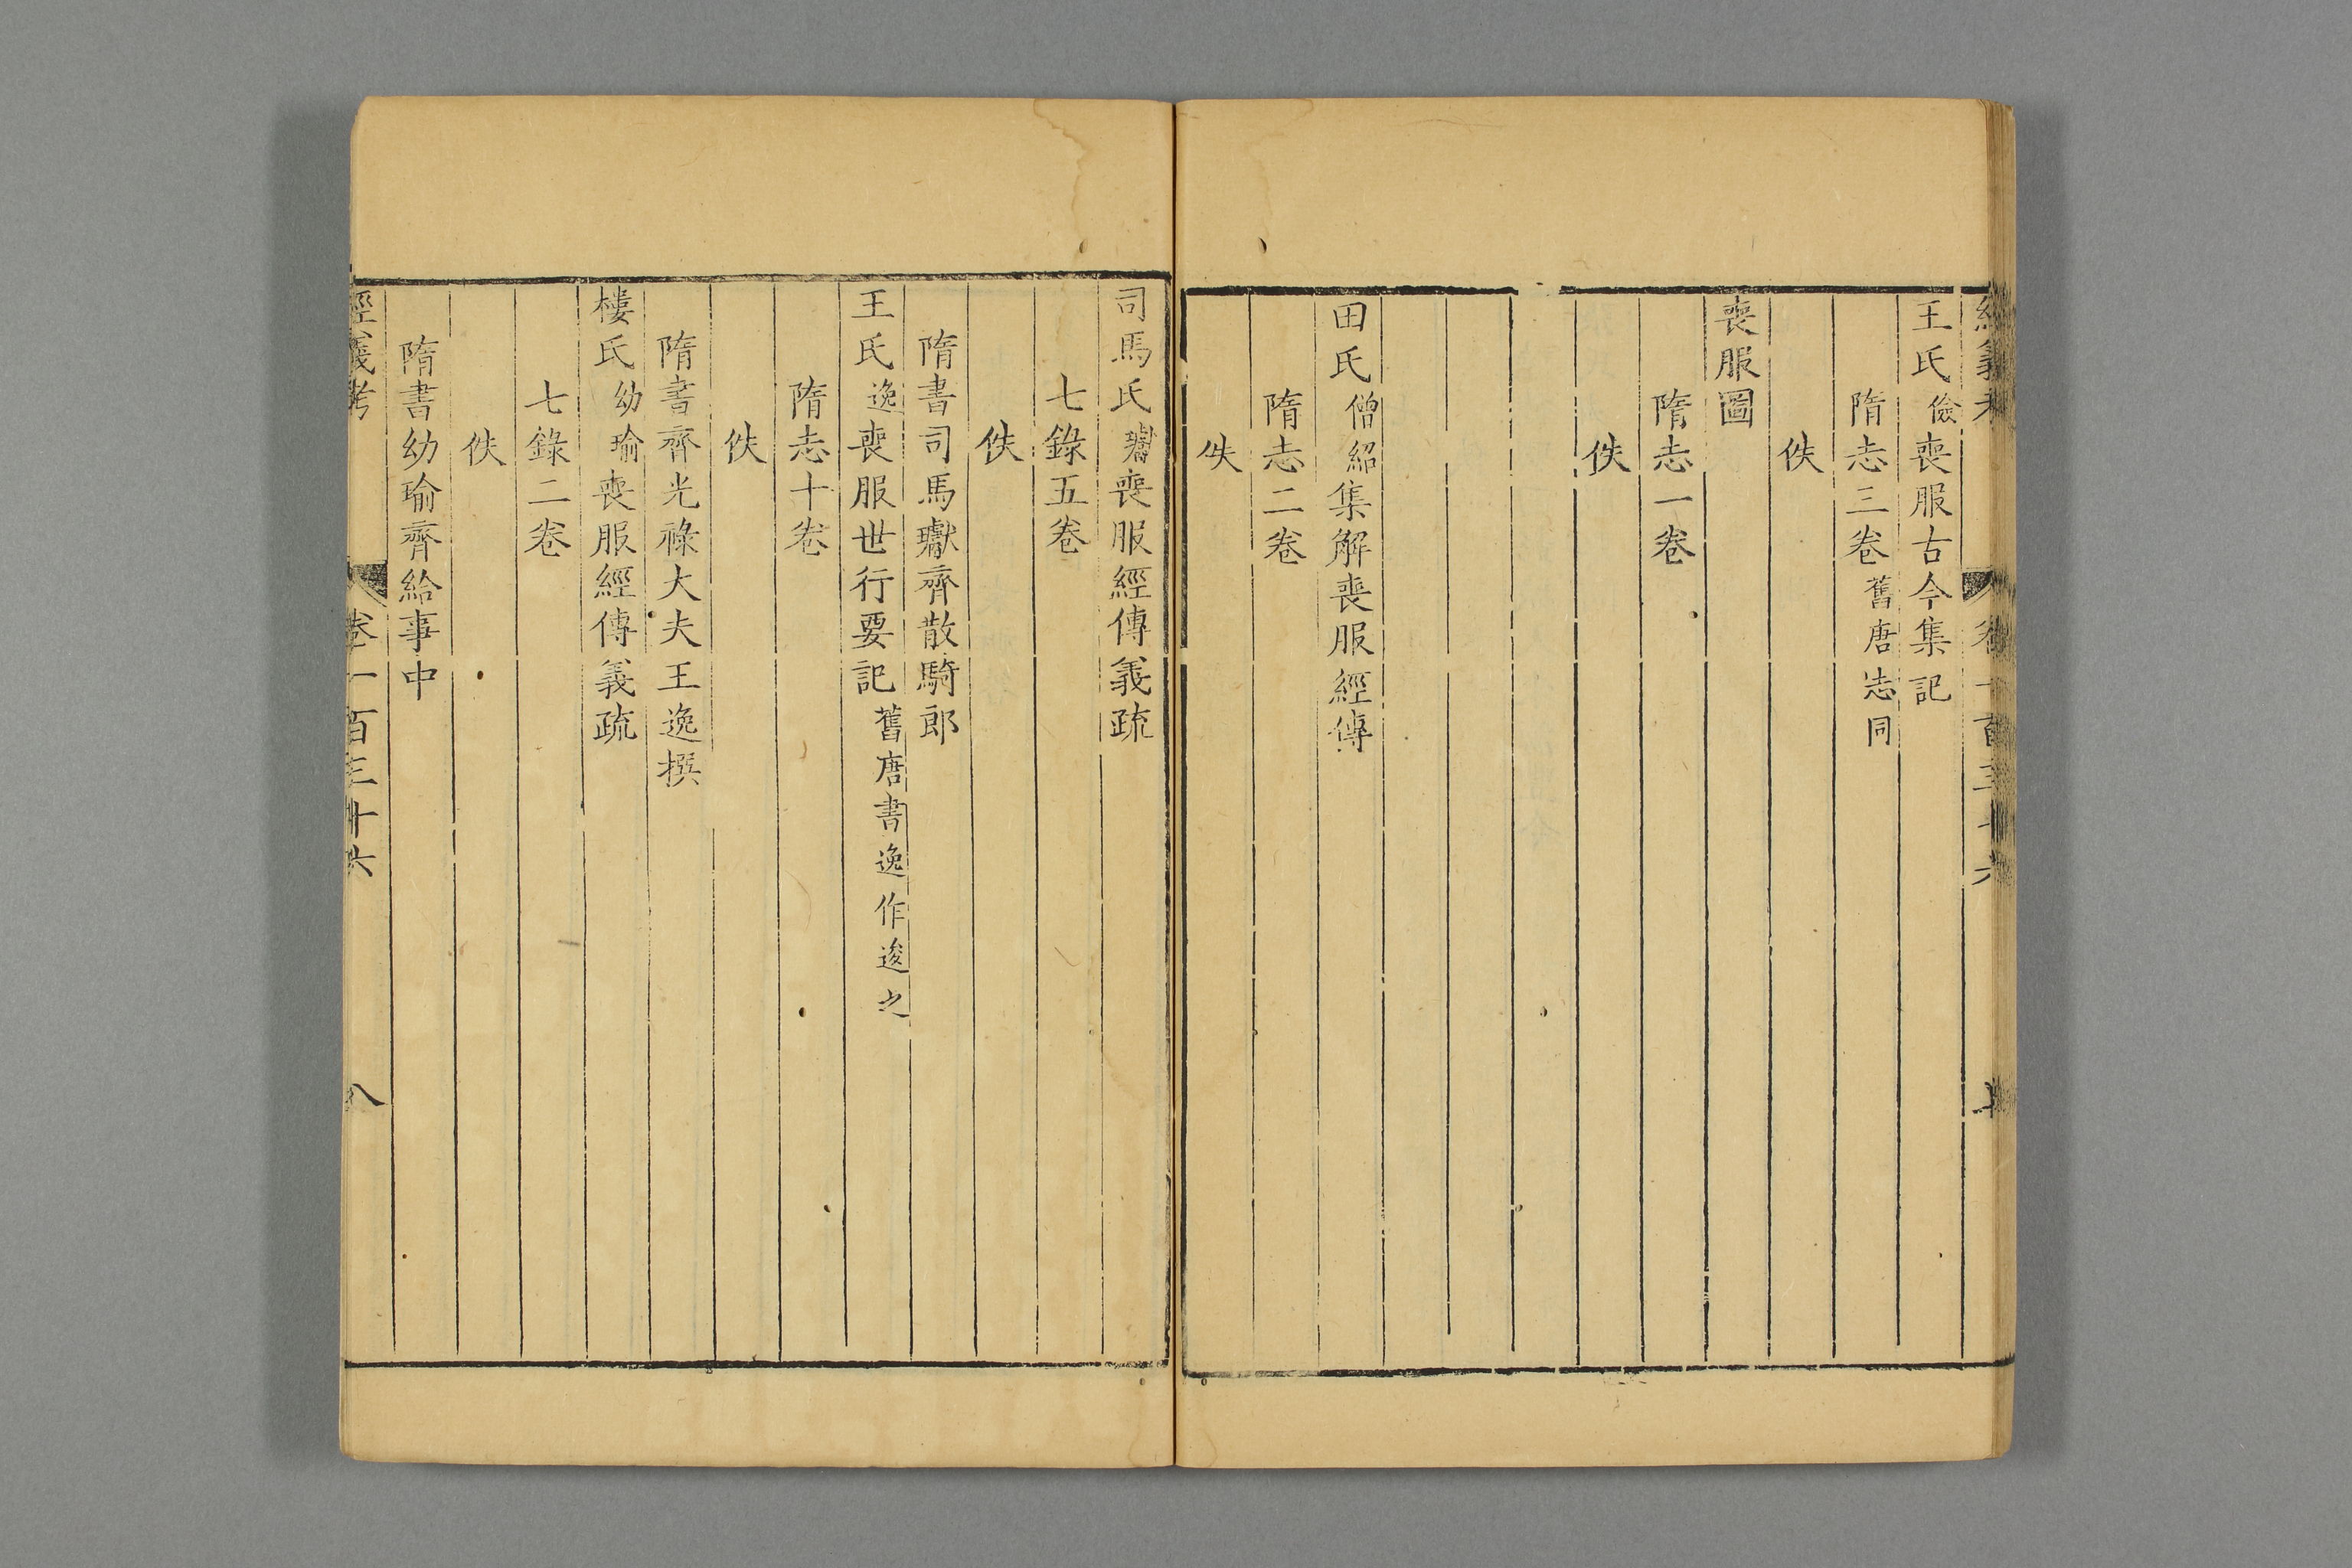 王氏儉喪服古今集記
隋志三卷舊唐志同
佚
喪服圖
隋志一卷
佚
田氏僧紹集解喪服經傳
隋志二卷
佚
司馬氏瓛喪服經傳義疏
七錄五卷
佚
隋書司馬瓛齊散騎郎
王氏逸喪服世行要記舊唐書逸作逡之
隋志十卷
佚
隋書齊光祿大夫王逸撰
樓氏幼瑜喪服經傳義疏
七錄二卷
佚
隋書幼瑜齊給事中
經義考 卷一百三十六 八